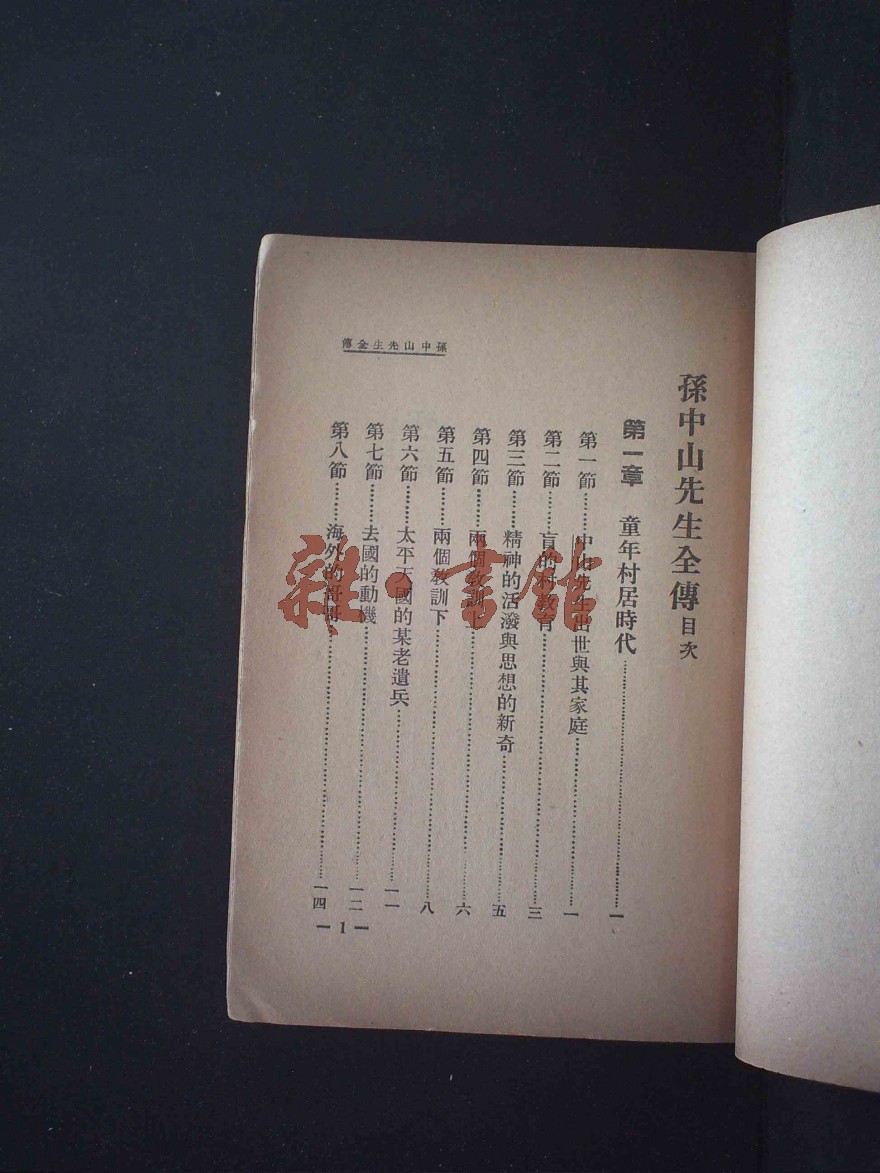 孫中山先生全傳目次
第一章　童年村居時代……一
第一節……中山先生出世與其家庭……一
第二節……盲的村教育……三
第三節……精神的活潑與思想的新奇……五
第四節……兩個教訓上……六
第五節……兩個教訓下……八
第六節……太平天國的某老遺兵……一一
第七節……去國的動機……一二
第八節……海外的哥哥……一四
孫中山先生全傳
— 1 —
雜·書館